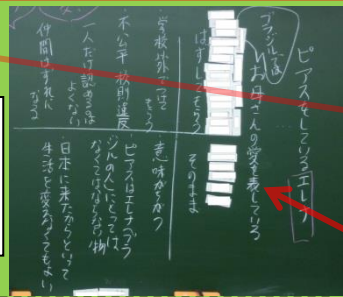 ピアスをしているエレナ
ブラジルでは
お母さんの愛を表している
はずしてもらう
学校外でつけてもらう
不公平 校則違反
一人だけ認めるのは
よくない
仲間はずれに
なる
そのまま
意味がちがう
ピアスはエレナ(ブラ
ジルの人)にとっては
なくてはならない物
日本に来たからといって
生活を変えなくてもよい